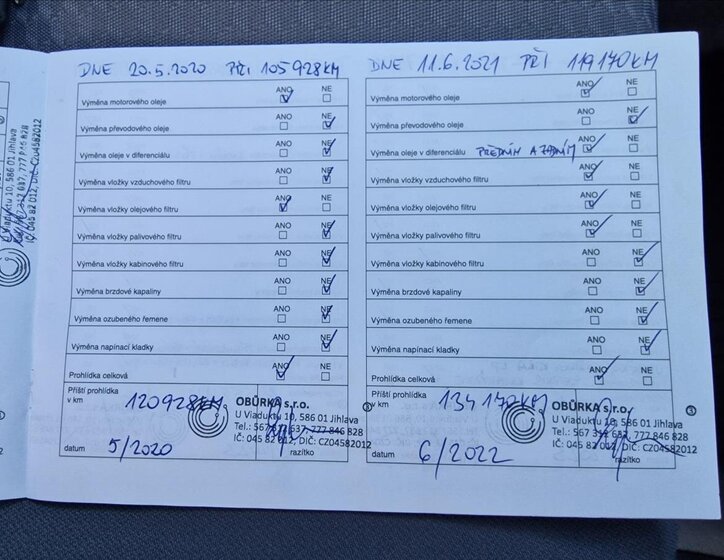 DNE 20.5.2020 PŘI 105928KM
ANO NE
Výměna motorového oleje
ANO NE
Výměna převodového oleje
ANO NE
Výměna oleje v diferenciálu
ANO NE
Výměna vložky vzduchového filtru
ANO NE
Výměna vložky olejového filtru
ANO NE
Výměna vložky palivového filtru
ANO NE
Výměna vložky kabinového filtru
ANO NE
Výměna brzdové kapaliny
ANO NE
Výměna ozubeného řemene
ANO NE
Výměna napínací kladky
ANO NE
Prohlídka celková
Příští prohlídka
v km 120928KM
OBŮRKA s.r.o.
U Viaduktu 10, 586 01 Jihlava
Tel.: 567 637, 777 846 828
IČ: 045 82 012, DIČ: CZ04582012
datum 5/2020 razítko
DNE 11.6.2021 PŘI 119170KM
ANO NE
Výměna motorového oleje
ANO NE
Výměna převodového oleje
ANO NE
Výměna oleje v diferenciálu PŘEDNÍM A ZADNÍM
ANO NE
Výměna vložky vzduchového filtru
ANO NE
Výměna vložky olejového filtru
ANO NE
Výměna vložky palivového filtru
ANO NE
Výměna vložky kabinového filtru
ANO NE
Výměna brzdové kapaliny
ANO NE
Výměna ozubeného řemene
ANO NE
Výměna napínací kladky
ANO NE
Prohlídka celková
Příští prohlídka
v km 134170KM
OBŮRKA s.r.o.
U Viaduktu 10, 586 01 Jihlava
Tel.: 567 637, 777 846 828
IČ: 045 82 012, DIČ: CZ04582012
datum 6/2022 razítko
U Viaduktu 10, 586 01 Jihlava
637, 777 846 828
IČ: 045 82 012, DIČ: CZ04582012